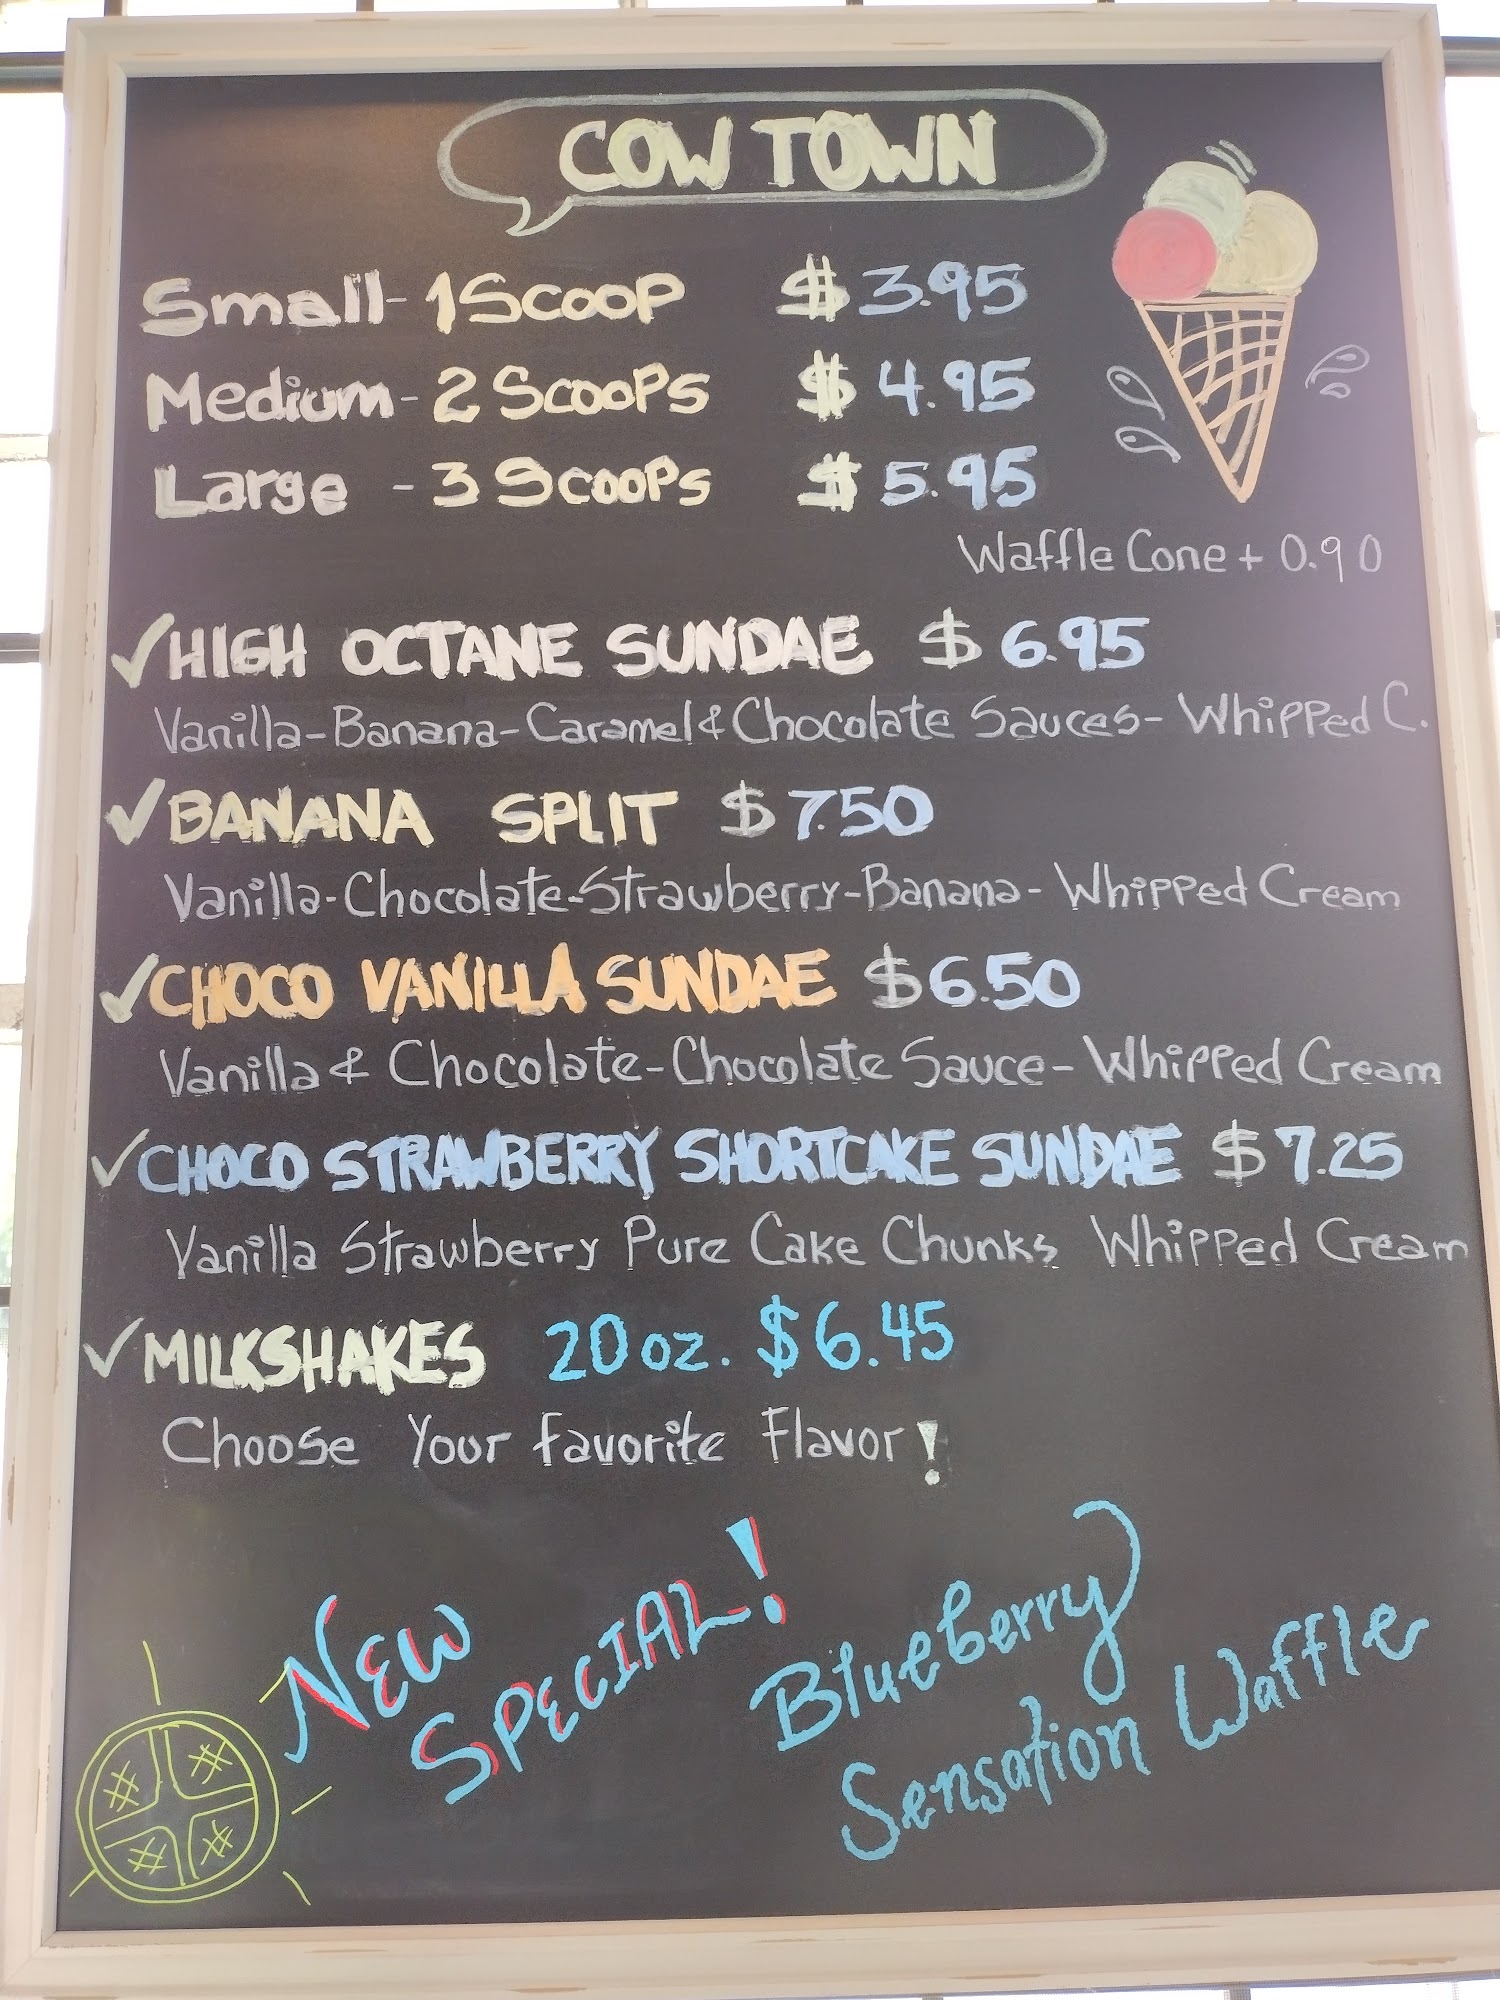 COW TOWN
Small - 1 Scoop $ 3.95
Medium - 2 Scoops $ 4.95
Large - 3 Scoops $ 5.95
Waffle Cone + 0.90
✓ HIGH OCTANE SUNDAE $ 6.95
Vanilla-Banana-Caramel & Chocolate Sauces- Whipped C.
✓ BANANA SPLIT $ 7.50
Vanilla-Chocolate-Strawberry-Banana- Whipped Cream
✓ CHOCO VANILLA SUNDAE $ 6.50
Vanilla & Chocolate-Chocolate Sauce- Whipped Cream
✓ CHOCO STRAWBERRY SHORTCAKE SUNDAE $ 7.25
Vanilla Strawberry Pure Cake Chunks Whipped Cream
✓ MILKSHAKES 20 oz. $ 6.45
Choose Your favorite Flavor!
NEW
SPECIAL!
Blueberry
Sensation Waffle